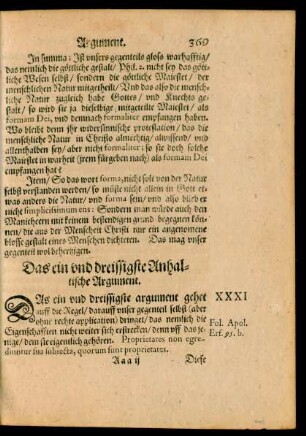 Argument. 369
In summa: Ist unsers gegenteils gloss warhafftig/
das nemlich die göttliche gestalt/ Phil. 2. nicht sey das gött-
liche Wesen selbst/ sondern die göttliche Maiestet/ der
menschlichen Natur mitgetheilt/ Vnd das also die mensch-
liche Natur zugleich habe Gottes/ vnd Knechts ge-
stalt/ so wird sie ja dieselbige mitgeteilte Maiestet/ als
formam Dei, vnd demnach formaliter empfangen haben.
Wo bleibt denn jhr widersinnische protestation/ das die
menschliche Natur in Christo almechtig/ alwissend/ vnd
allenthalben sey/ aber nicht formaliter: so sie doch solche
Maiestet in warheit (jrem fürgeben nach) als formam Dei
empfangen hat?
Item/ So das wort forma, nicht solt von der Natur
selbst verstanden werden/ so müste nicht allein in Gott et-
was anders die Natur/ vnd forma sein/ vnd also blieb er
nicht simplicissimum ens: Sondern man würde auch den
Manicheern mit keinem bestendigen grund begegnen kön-
nen/ die aus der Menscheit Christi nur ein angenomene
blosse gestalt eines Menschen dichteten. Das mag vnser
gegenteil wol behertzigen.
Das ein vnd dreissigste Anhal-
tische Argument.
DAs ein vnd dreissigste argument gehet XXXI
auff die Regel/ darauff vnser gegenteil selbst (aber
ohne rechte application) dringet/ das nemlich die Fol. Apol.
Eigenschafften nicht weiter sich erstrecken/ denn vff das je- Erf. 95. b.
nige/ dem sie eigentlich gehören. Proprietates non egre-
diuntur sua subiecta, quorum sunt proprietates.
Aaa ij Diese